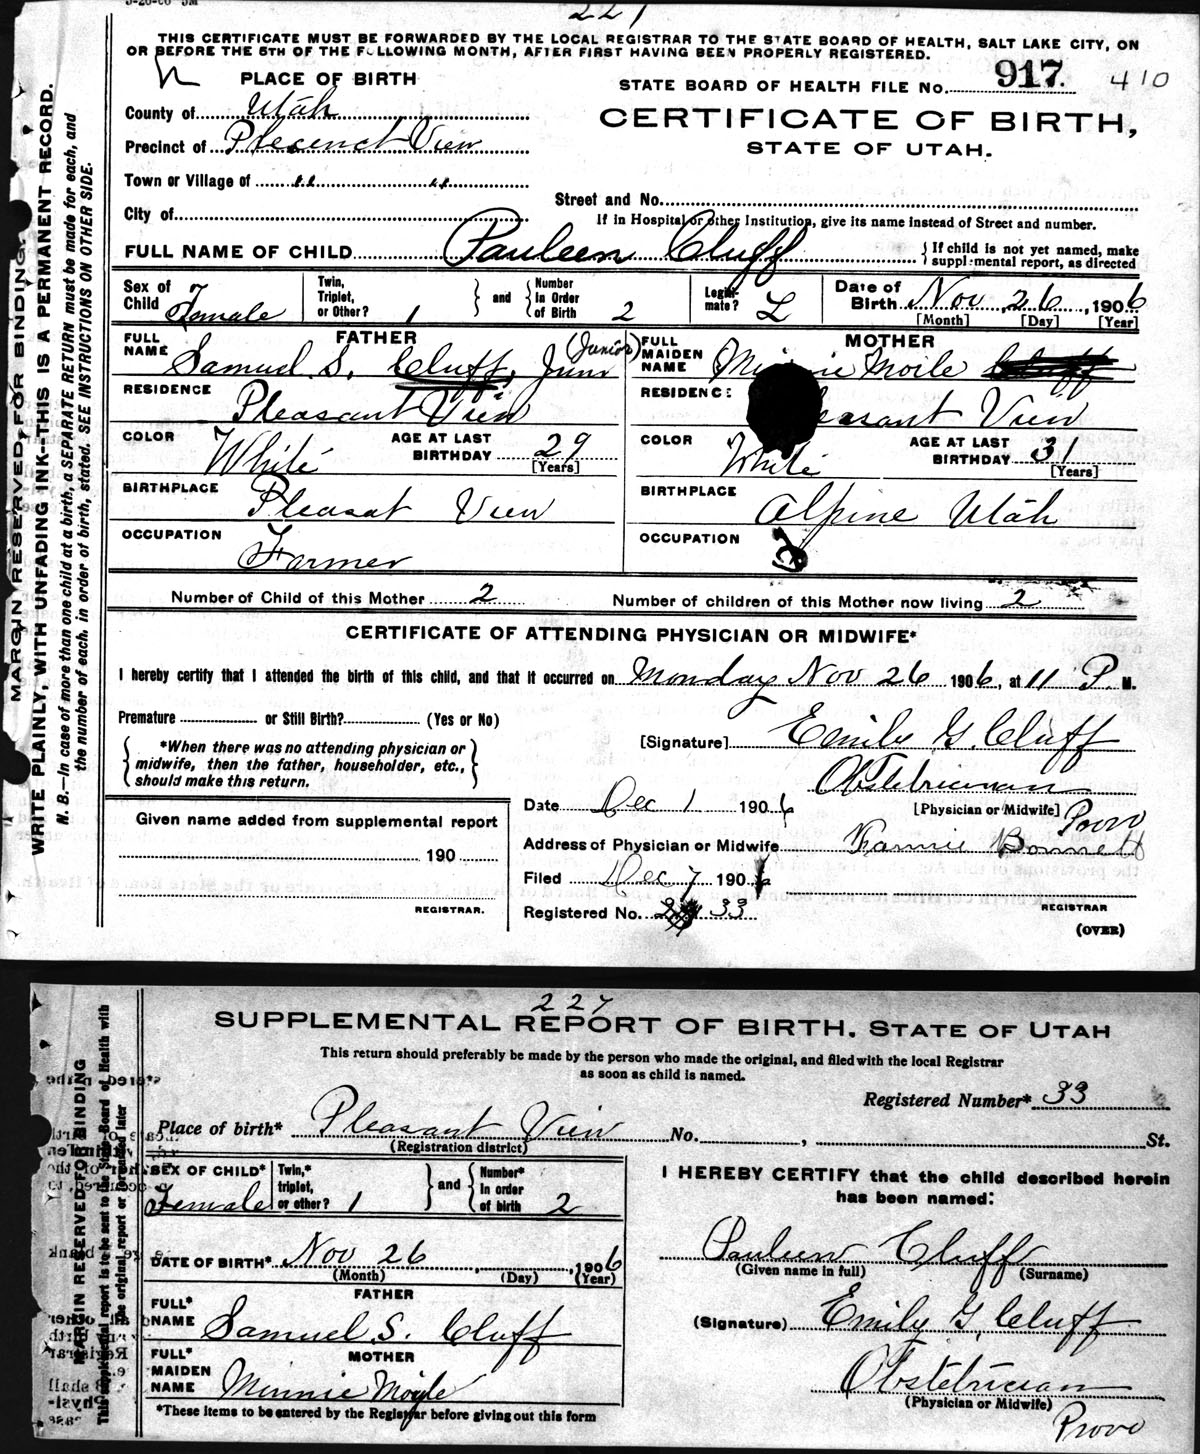 221
THIS CERTIFICATE MUST BE FORWARDED BY THE LOCAL REGISTRAR TO THE STATE BOARD OF HEALTH, SALT LAKE CITY, ON
OR BEFORE THE 5TH OF THE FOLLOWING MONTH, AFTER FIRST HAVING BEEN PROPERLY REGISTERED.
PLACE OF BIRTH
STATE BOARD OF HEALTH FILE No. 917. 410
County of Utah
CERTIFICATE OF BIRTH,
STATE OF UTAH.
Precinct of View
Town or Village of " "
Street and No.
City of
If in Hospital or other Institution, give its name instead of Street and number.
FULL NAME OF CHILD Pauleen Cluff
{ If child is not yet named, make supplemental report, as directed
Sex of Child Female
Twin, Triplet, or Other? 1 } and { Number in Order of Birth 2
Legitimate? L
Date of Birth Nov 26, 1906
[Month] [Day] [Year]
FATHER
FULL NAME Samuel S. Cluff, Junr (Junior)
MOTHER
FULL MAIDEN NAME Minnie Moile Cluff
RESIDENCE Pleasant View
RESIDENCE Pleasant View
COLOR White AGE AT LAST BIRTHDAY 29 [Years]
COLOR White AGE AT LAST BIRTHDAY 31 [Years]
BIRTHPLACE Pleasat View
BIRTHPLACE Alpine Utah
OCCUPATION Farmer
OCCUPATION
Number of Child of this Mother 2 Number of children of this Mother now living 2
CERTIFICATE OF ATTENDING PHYSICIAN OR MIDWIFE*
I hereby certify that I attended the birth of this child, and that it occurred on Monday Nov 26 1906, at 11 P. M.
Premature or Still Birth? (Yes or No)
{ *When there was no attending physician or midwife, then the father, householder, etc., should make this return. }
[Signature] Emily G. Cluff
Obstetrician
[Physician or Midwife]
Date Dec 1 1906
Provo
Given name added from supplemental report
190
REGISTRAR.
Address of Physician or Midwife
Fannie Bonnett
Filed Dec 7 1906
Registered No. 33
REGISTRAR
(OVER)
MARGIN RESERVED FOR BINDING.
WRITE PLAINLY, WITH UNFADING INK--THIS IS A PERMANENT RECORD.
N. B.—In case of more than one child at a birth, a SEPARATE RETURN must be made for each, and
the number of each, in order of birth, stated. SEE INSTRUCTIONS ON OTHER SIDE.
227
SUPPLEMENTAL REPORT OF BIRTH, STATE OF UTAH
This return should preferably be made by the person who made the original, and filed with the local Registrar
as soon as child is named.
Registered Number* 33
Place of birth* Pleasant View No. , St.
(Registration district)
SEX OF CHILD* Female
Twin,* triplet, or other? 1 } and { Number* in order of birth 2
I HEREBY CERTIFY that the child described herein
has been named:
DATE OF BIRTH* Nov 26, 1906
(Month) (Day) (Year)
Pauleen Cluff
(Given name in full) (Surname)
FATHER
FULL* NAME Samuel S. Cluff
(Signature) Emily G. Cluff
MOTHER
FULL* MAIDEN NAME Minnie Moyle
Obstetrician
(Physician or Midwife)
Provo
*These items to be entered by the Registrar before giving out this form
MARGIN RESERVED FOR BINDING
This supplemental report is to be sent to the State Board of Health with
the original report or forwarded later